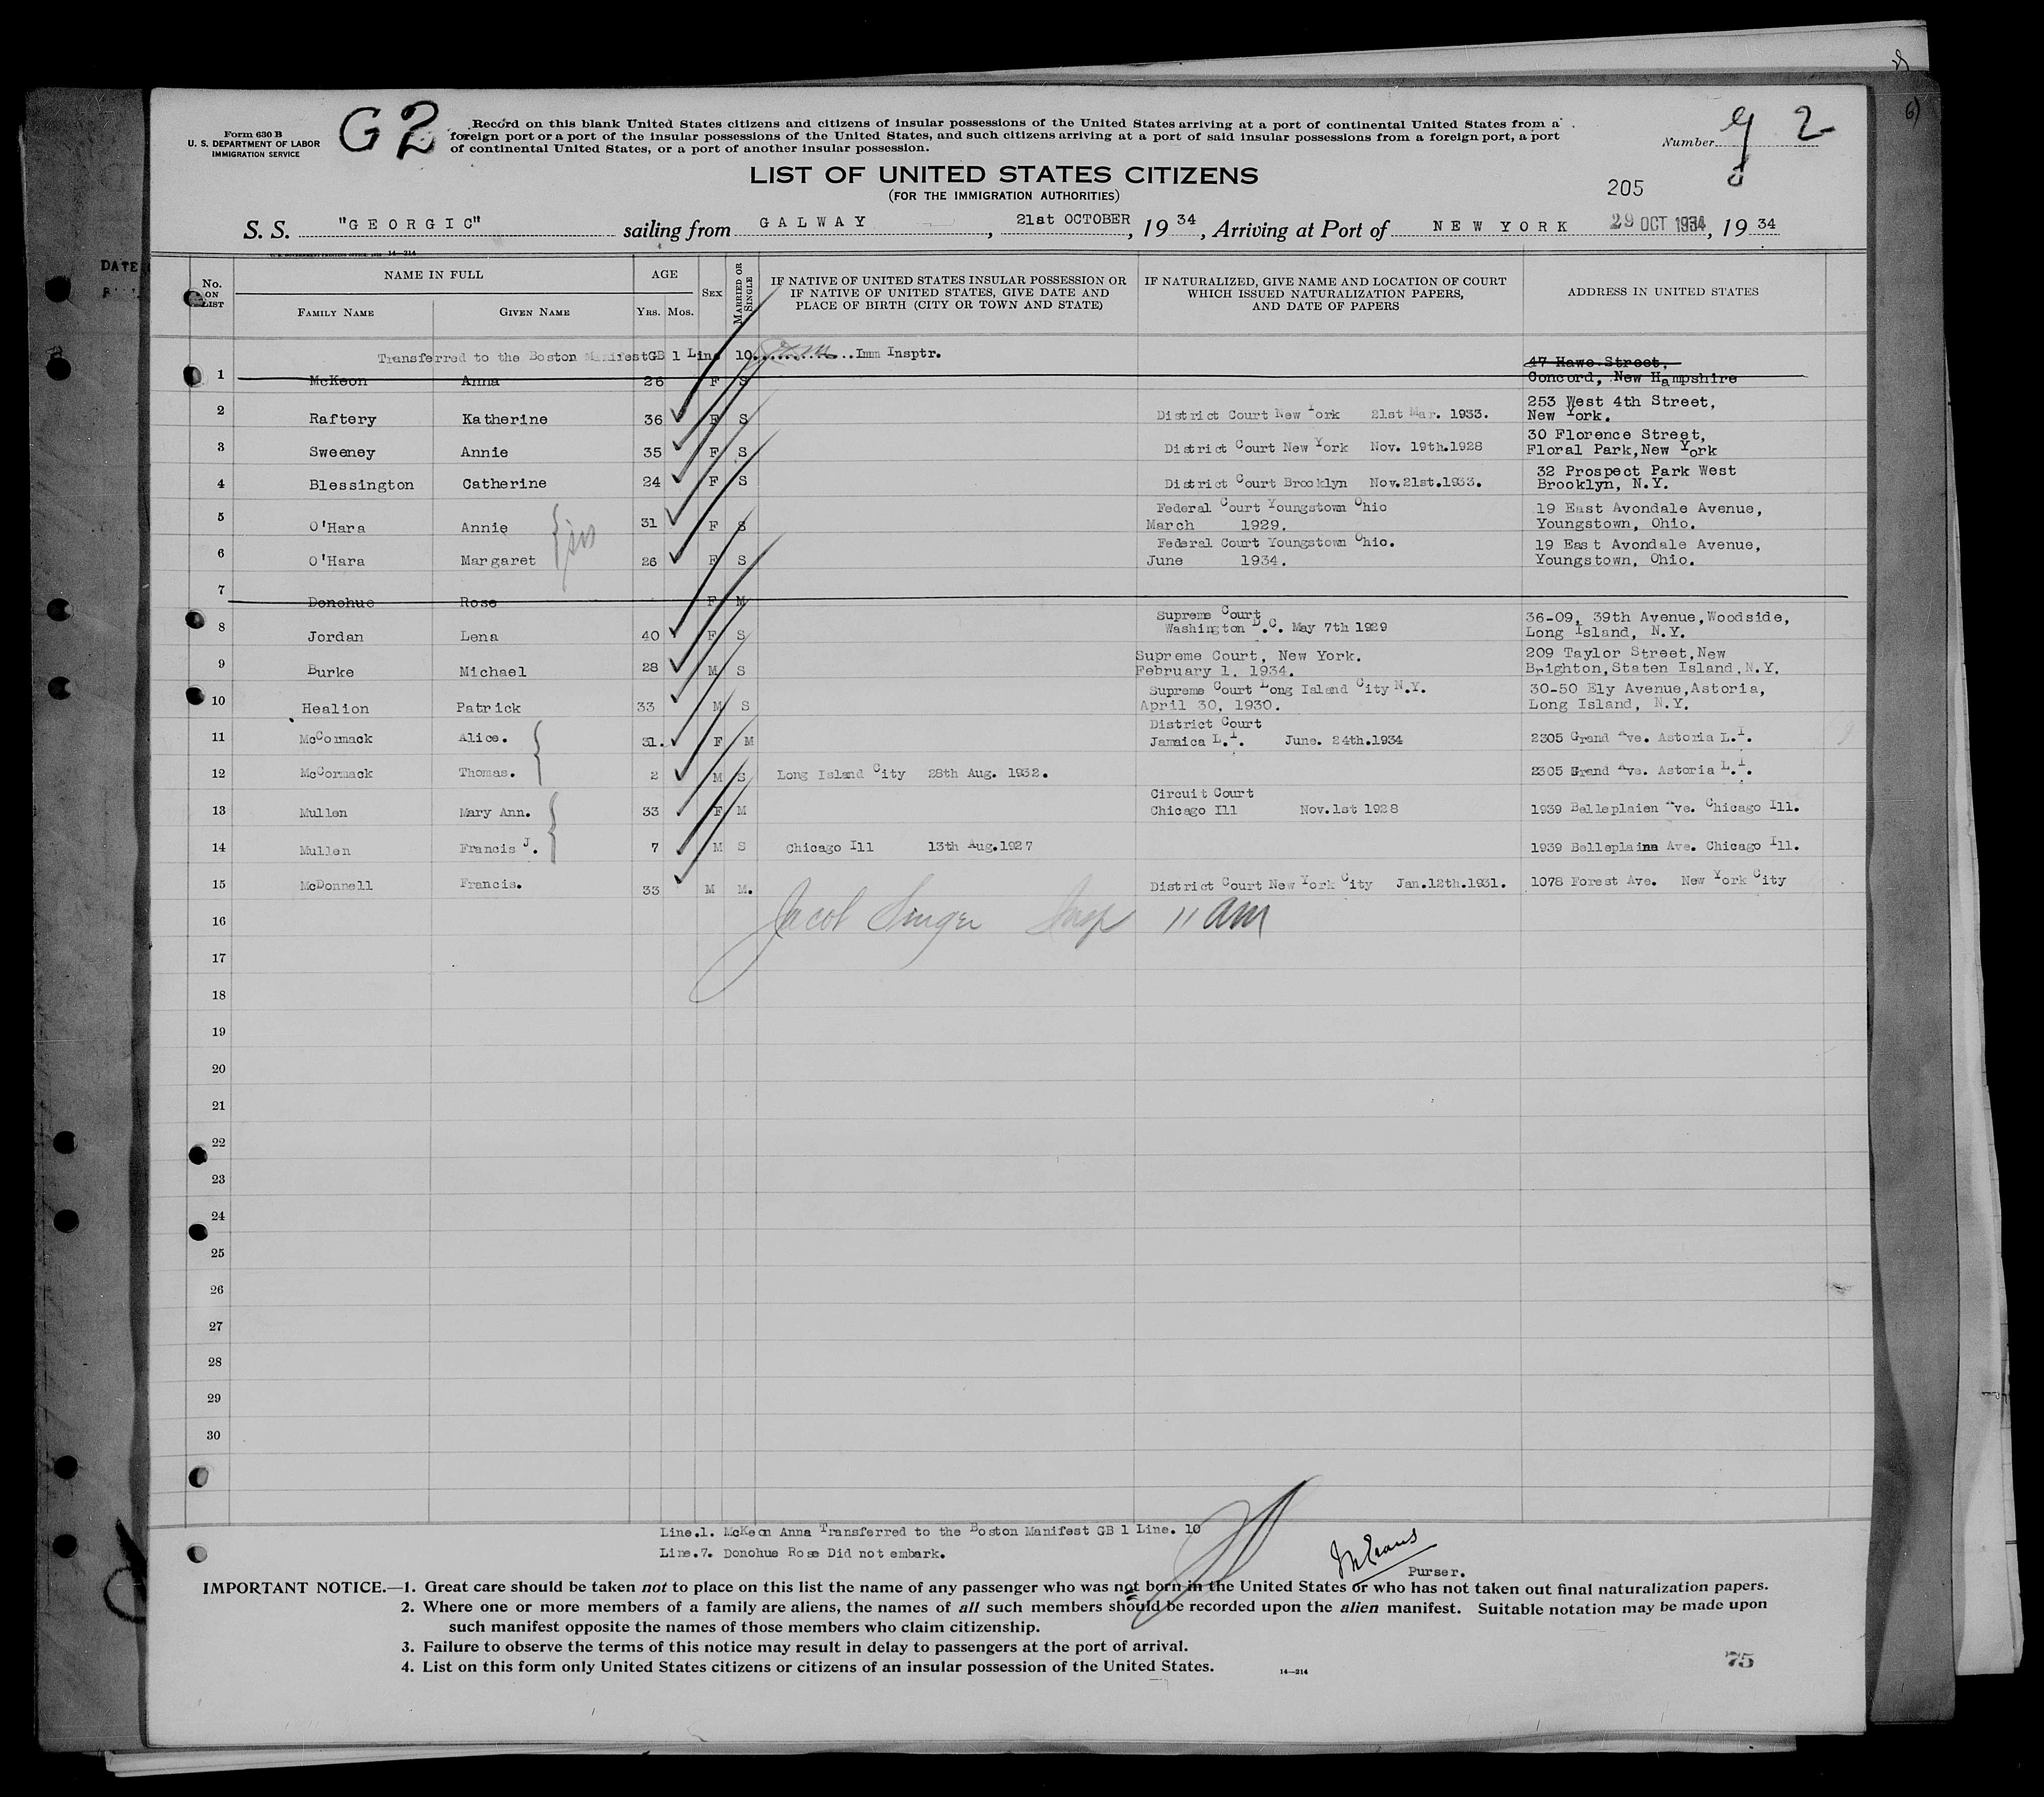 Form 630 B
U. S. DEPARTMENT OF LABOR
IMMIGRATION SERVICE
G2
Record on this blank United States citizens and citizens of insular possessions of the United States arriving at a port of continental United States from a
foreign port or a port of the insular possessions of the United States, and such citizens arriving at a port of said insular possessions from a foreign port, a port
of continental United States, or a port of another insular possession.
Number 2
LIST OF UNITED STATES CITIZENS
(FOR THE IMMIGRATION AUTHORITIES)
205
S. S. "GEORGIC" sailing from GALWAY, 21st OCTOBER, 19 34, Arriving at Port of NEW YORK 29 OCT 1934, 19 34
14—214
DATE
No. ON LIST
NAME IN FULL
FAMILY NAME
GIVEN NAME
AGE
YRS. MOS.
SEX
MARRIED OR SINGLE
IF NATIVE OF UNITED STATES INSULAR POSSESSION OR
IF NATIVE OF UNITED STATES, GIVE DATE AND
PLACE OF BIRTH (CITY OR TOWN AND STATE)
IF NATURALIZED, GIVE NAME AND LOCATION OF COURT
WHICH ISSUED NATURALIZATION PAPERS,
AND DATE OF PAPERS
ADDRESS IN UNITED STATES
Transferred to the Boston Manifest GB 1 Line 10. Imm Insptr.
47 Hawe Street,
1 McKeon Anna 26 F S Concord, New Hampshire
253 West 4th Street,
2 Raftery Katherine 36 F S District Court New York 21st Mar. 1933. New York.
30 Florence Street,
3 Sweeney Annie 35 F S District Court New York Nov. 19th.1928 Floral Park, New York
32 Prospect Park West
4 Blessington Catherine 24 F S District Court Brooklyn Nov.21st.1933. Brooklyn, N.Y.
Federal Court Youngstown Ohio 19 East Avondale Avenue,
5 O'Hara Annie 31 F S March 1929. Youngstown, Ohio.
sis
Federal Court Youngstown Ohio. 19 East Avondale Avenue,
6 O'Hara Margaret 26 F S June 1934. Youngstown, Ohio.
7 Donohue Rose F M
Supreme Court 36-09, 39th Avenue, Woodside,
8 Jordan Lena 40 F S Washington D.C. May 7th 1929 Long Island, N.Y.
Supreme Court, New York. 209 Taylor Street, New
9 Burke Michael 28 M S February 1. 1934. Brighton, Staten Island, N.Y.
Supreme Court Long Island City N.Y. 30-50 Ely Avenue, Astoria,
10 Healion Patrick 33 M S April 30, 1930. Long Island, N.Y.
District Court
11 McCormack Alice. 31. F M Jamaica L.I. June. 24th.1934 2305 Grand Ave. Astoria L.I.
12 McCormack Thomas. 2 M S Long Island City 28th Aug. 1932. 2305 Grand Ave. Astoria L.I.
Circuit Court
13 Mullen Mary Ann. 33 F M Chicago Ill Nov.1st 1928 1939 Belleplaien Ave. Chicago Ill.
14 Mullen Francis J. 7 M S Chicago Ill 13th Aug.1927 1939 Belleplaine Ave. Chicago Ill.
15 McDonnell Francis. 33 M M. District Court New York City Jan.12th.1931. 1078 Forest Ave. New York City
16 Jacob Singer Insp 11 am
17
18
19
20
21
22
23
24
25
26
27
28
29
30
Line.1. McKeon Anna Transferred to the Boston Manifest GB 1 Line. 10
Line.7. Donohue Rose Did not embark.
Purser.
IMPORTANT NOTICE.—1. Great care should be taken not to place on this list the name of any passenger who was not born in the United States or who has not taken out final naturalization papers.
2. Where one or more members of a family are aliens, the names of all such members should be recorded upon the alien manifest. Suitable notation may be made upon
such manifest opposite the names of those members who claim citizenship.
3. Failure to observe the terms of this notice may result in delay to passengers at the port of arrival.
4. List on this form only United States citizens or citizens of an insular possession of the United States.
14—214
75